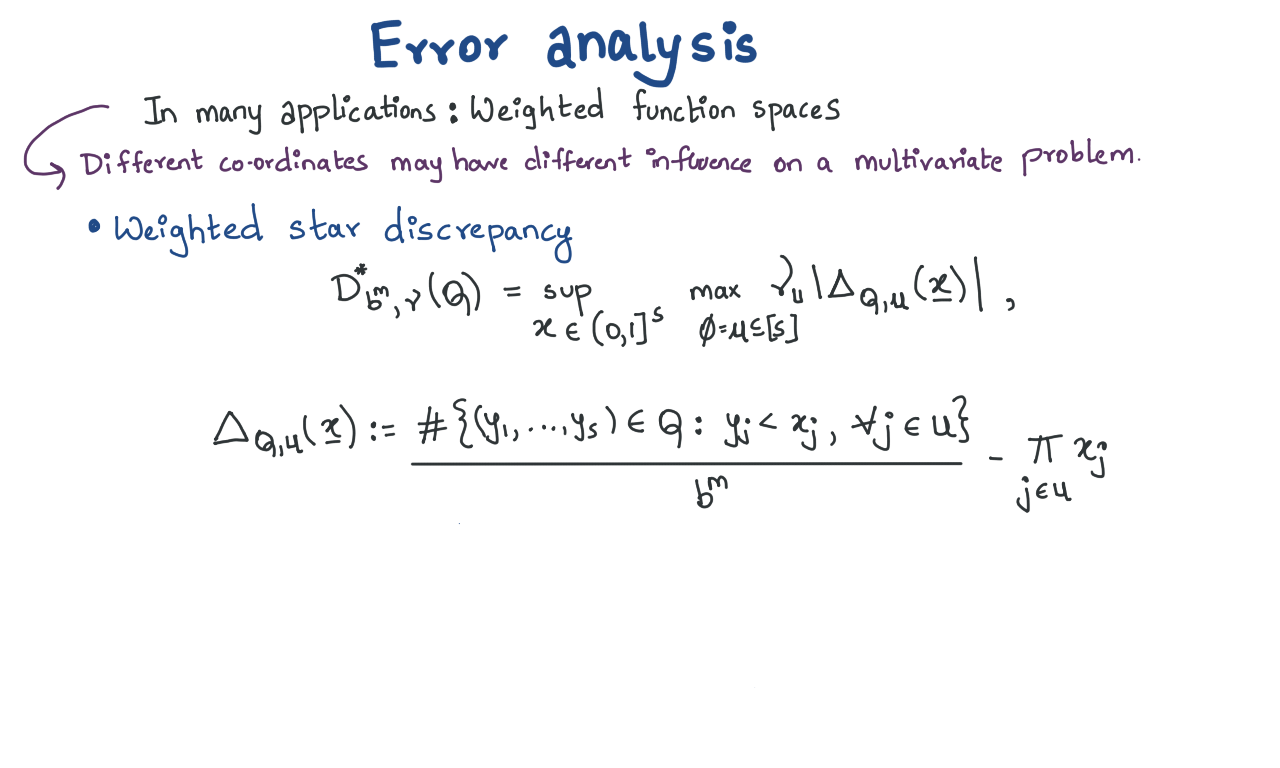 Error analysis
In many applications : Weighted function spaces
Different co-ordinates may have different influence on a multivariate problem.
• Weighted star discrepancy
D*_{b^m, γ}(Q) = sup_{x ∈ (0,1]^s} max_{∅=u⊆[s]} γ_u |Δ_{Q,u}(x)| ,
Δ_{Q,u}(x) := #{(y_1, ..., y_s) ∈ Q : y_j < x_j , ∀j ∈ u} / b^m - Π_{j∈u} x_j